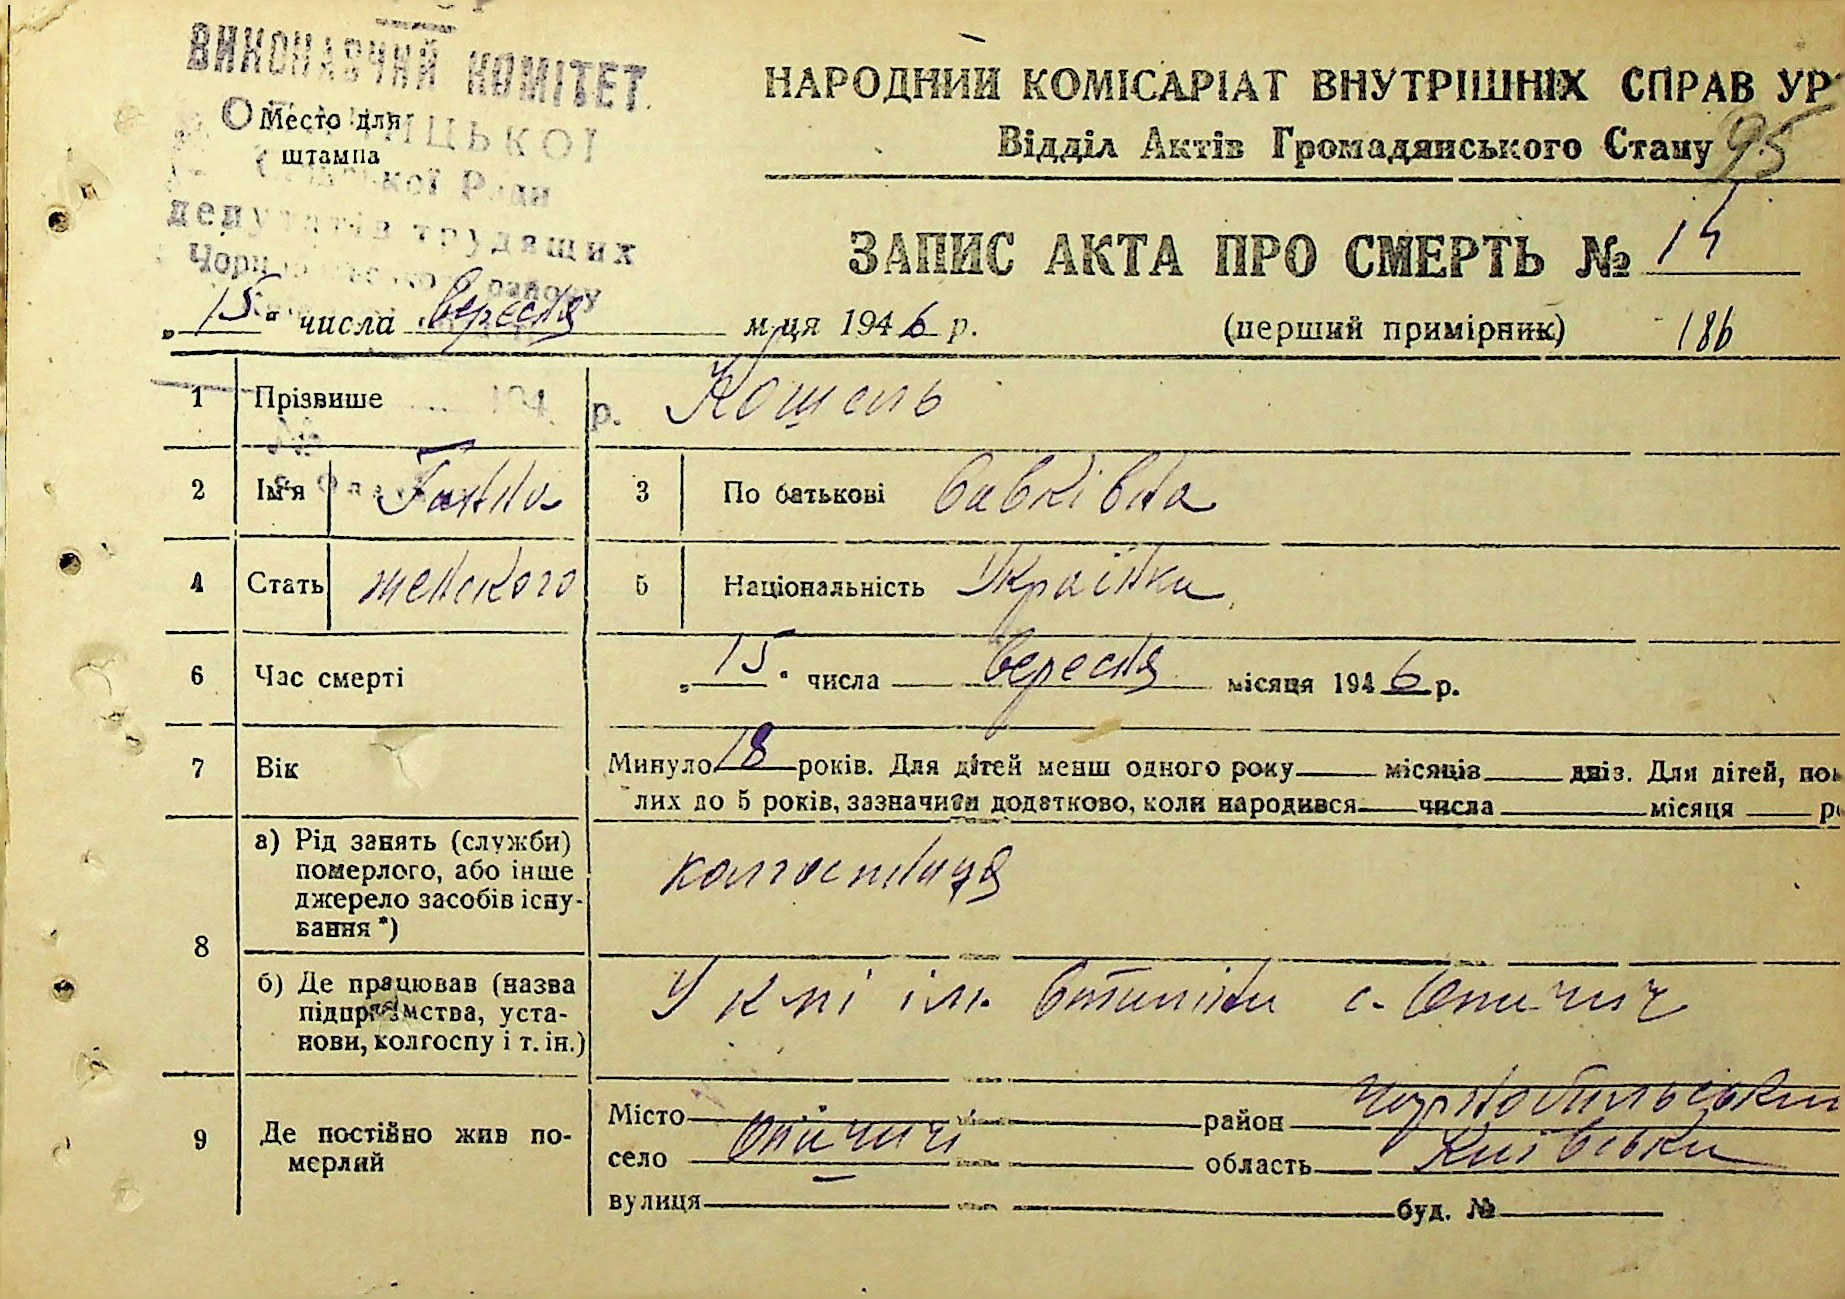 ВИКОНАВЧИЙ КОМІТЕТ
Место для
штампа
депутатів трудящих
району
НАРОДНИЙ КОМІСАРІАТ ВНУТРІШНІХ СПРАВ УР
Відділ Актів Громадянського Стану
95
ЗАПИС АКТА ПРО СМЕРТЬ № 14
„15“ числа вересня м-ця 1946 р. (перший примірник) 186
1 Прізвише 194 р. Кошель
2 Ім'я Ганна 3 По батькові Савківна
4 Стать женского 5 Національність Українка
6 Час смерті „15“ числа вересня місяця 1946 р.
7 Вік Минуло 18 років. Для дітей менш одного року місяців днів. Для дітей, пом
лих до 5 років, зазначити додатково, коли народився числа місяця ро
8 а) Рід занять (служби)
померлого, або інше
джерело засобів існу-
вання *)
колгоспниця
б) Де працював (назва
підприємства, уста-
нови, колгоспу і т. ін.)
У к-пі ім. с. Опачичі
9 Де постійно жив по-
мерлий
Місто район Чорнобильський
село Опачичі область Київська
вулиця буд. №